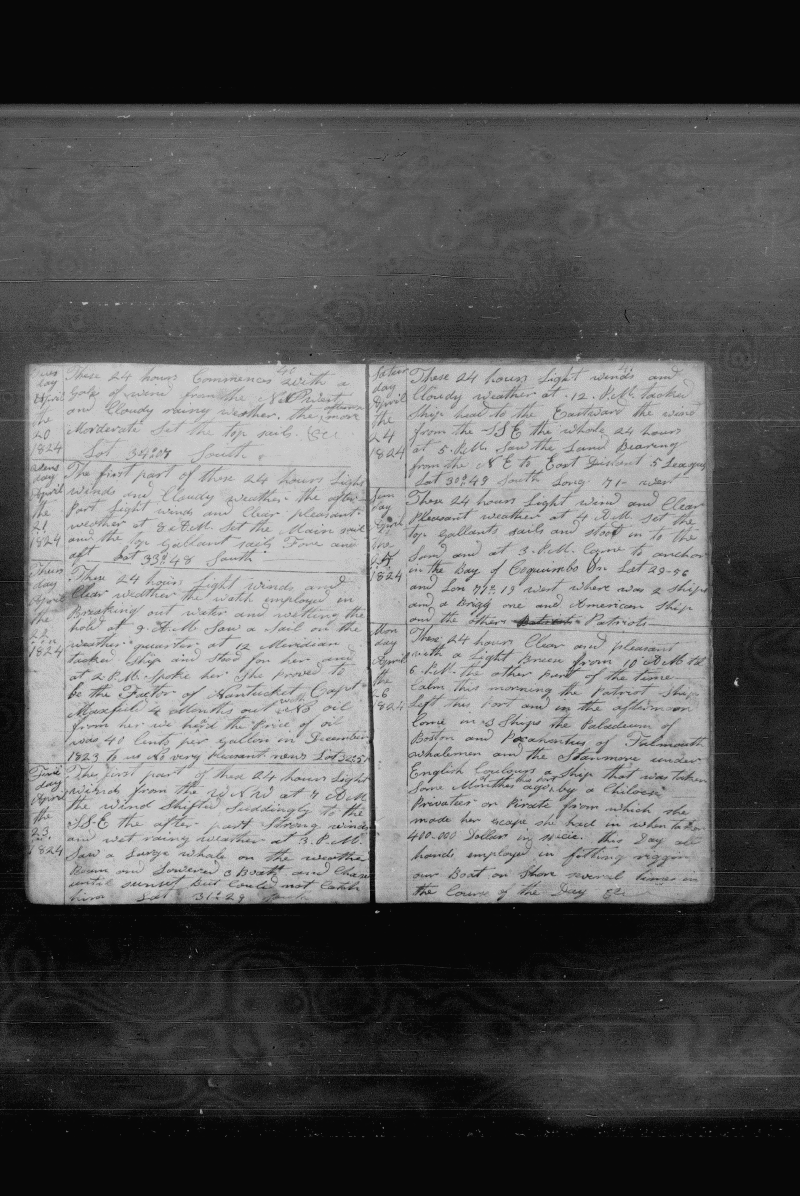 40
Tues day April the 20 1824
These 24 hours Commences with a
Gale of wind from the N West
and Cloudy rainy weather. the afternoon more
Morderate Set the top sails. &c
Lat 34=08 South
Wens day April the 21 1824
The first part of these 24 hours Light
winds and Cloudy weather the after
Part Light winds and Clear pleasant
weather at 8 A.M. Set the Main sail
and the top Gallant sails Fore and
aft Lat 33=48 South
Thurs day April the 22 1824
These 24 hours Light winds and
Clear weather the watch employed in
Breaking out water and wetting the
hold at 9 A.M. Saw a Sail on the
weather quarter at 12 Meridian
tacked Ship and Stood for her and
at 2 P.M. Spoke her She proved to
be the Factor of Nantucket Capt
Maxfield 4 Months out with No oil
from her we heard the price of oil
was 40 Cents per Gallon in December
1823 to us No very pleasant news Lat
Fri day April the 23 1824
The first part of these 24 hours Light
winds from the N W at 7 A.M.
the wind Shifted Suddingly to the
S.S.E the after part Strong winds
and wet rainy weather at 3 P.M.
Saw a Large whale on the weather
Beam and Lowered 3 Boats and Chased
until sunset But Could not Catch
him Lat 31=29 South
41
Satur day April the 24 1824
These 24 hours Light winds and
Cloudy weather at 12 P.M. tacked
Ship head to the Eastward the wind
from the SSE the whole 24 hours
at 5 P.M. Saw the Land Bearing
from the N E to East Distant 5 Leagues
Lat 30=49 South Long 71= west
Sun day April the 25 1824
These 24 hours Light wind and Clear
Pleasant weather at 4 A.M. Set the
top gallants sails and stood in to the
Land and at 3 P.M. Came to anchor
in the Bay of Coquimbo in Lat 29-56
and Lon 71=19 west where was 2 Ships
and a Brigg one and American Ship
and the other Patriots
Mon day April the 26 1824
These 24 hours Clear and pleasant
with a light Breeze from 10 A.M. till
6 P.M. the other part of the time
Calm this morning the Patriot Ship
Left this Port and in the afternoon
Come in 3 Ships the Paladium of
Boston and Pocahontas of Falmouth
whalemen and the Stanmore under
English Coulours a Ship that was taken
Some Months ago by a Chiloese
Privatier or Pirate from which she
made her escape she had in when taken
400-000 Dollars in specie. this Day all
hands employed in fitting riggin
our Boat on Shore several times in
the Course of the Day &c